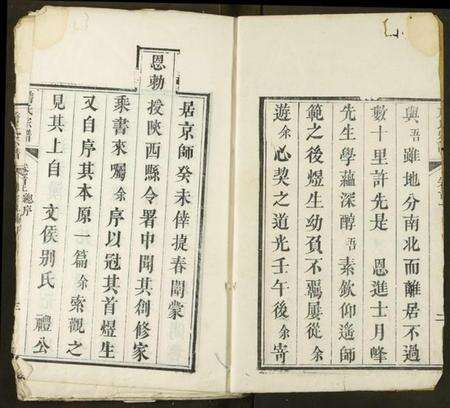 與吾雖地分南北而離居不過
數十里許先是 恩進士月峰
先生學蘊深醇吾素欽仰遙師
範之後煜生幼負不羈屢從余
遊余心契之道光壬午後余寄
居京師癸未倖捷春闈蒙
恩勅授陝西縣令署中聞其創修家
乘書來囑余序以冠其首煜生
又自序其本原一篇余索觀之
見其上自 文侯別氏 禮公
宗譜
總序